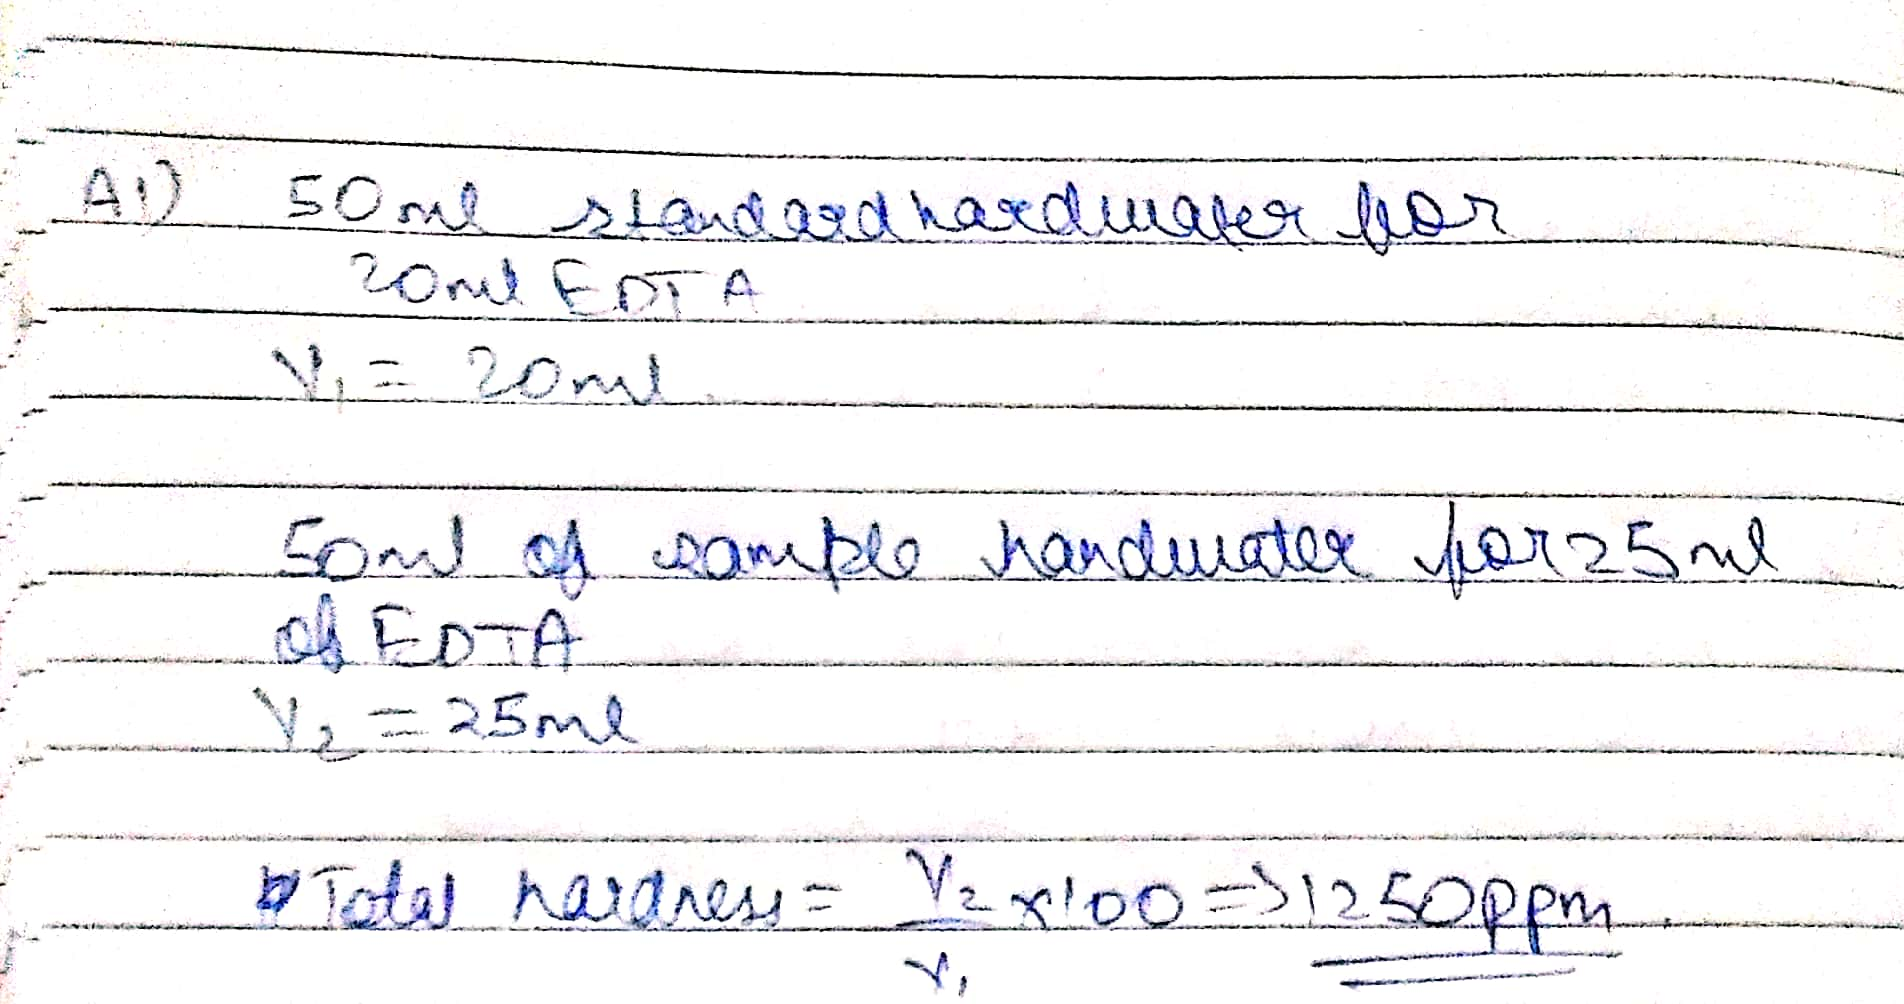 A1) 50ml standard hardwater for
20ml EDTA
V₁ = 20ml
50ml of sample hardwater for 25ml
of EDTA
V₂ = 25ml
Total hardness = V₂/V₁ x100 => 1250ppm